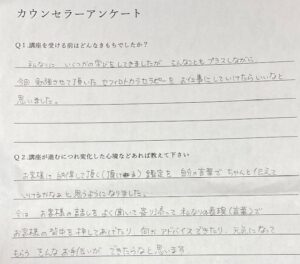 カウンセラーアンケート
Q1.講座を受ける前はどんなきもちでしたか?
いくつかの学びをしてきましたが そんなこともプラスしながら、
今回 勉強させて頂いた をお仕事にしていけたらいいなと
思いました。
Q2.講座が進むにつれ変化した心境などあれば教えて下さい
お客様に 納得して頂く(頂ける)鑑定を 自分の言葉で ちゃんと伝えて
いけるかなぁと思うようになりました。
今は お客様の話しをよく聞いて寄り添って 私なりの表現(言葉)で
お客様の背中を押してあげたり 何か アドバイスできたり、元気になって
もらう そんなお手伝いが できたらなと思います